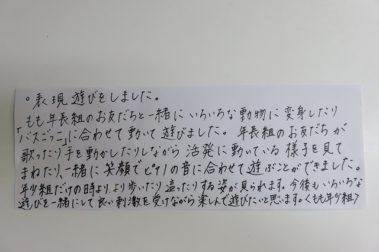 。表現遊びをしました。
もも年長組のお友だちと一緒にいろいろな動物に変身したり
「バスごっこ」に合わせて動いて遊びました。年長組のお友だちが
歌ったり手を動かしたりしながら活発に動いている様子を見て
まねたり、一緒に笑顔でピアノの音に合わせて遊ぶことができました。
年少組だけの時より、より歩いたり這ったりする姿が見られます。今後もいろいろな
遊びを一緒にして良い刺激を受けながら楽しんで遊びたいと思います。〈もも年少組〉